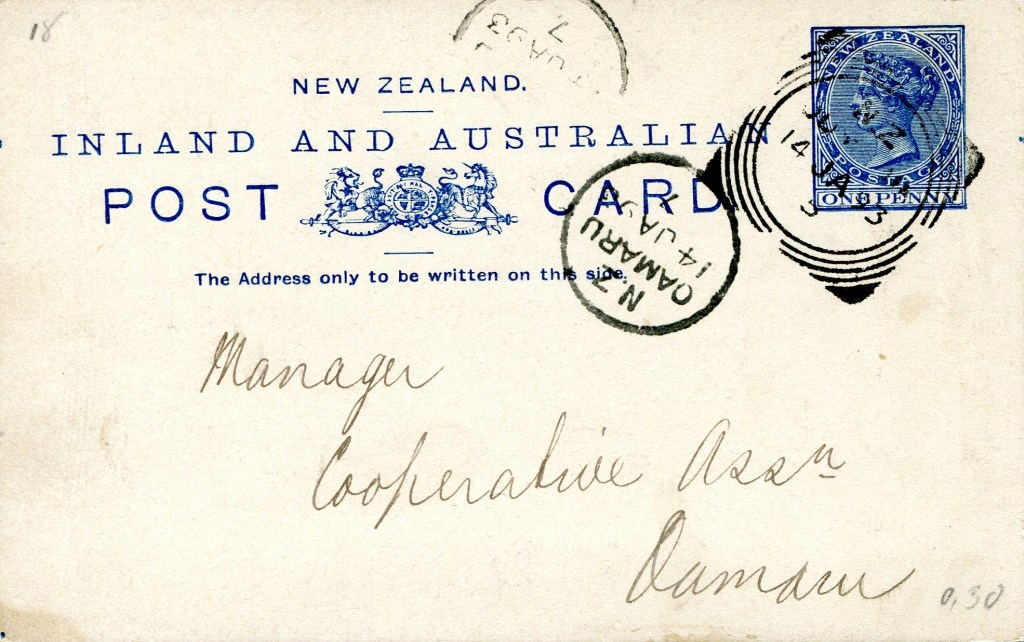 18
JA 93
7
NEW ZEALAND.
INLAND AND AUSTRALIAN
POST CARD
The Address only to be written on this side.
NEW ZEALAND
POSTAGE
ONE PENNY
N.Z
14 JA
93
N.Z
OAMARU
14 JA 93
Manager
Cooperative Assn
Oamaru
0,30